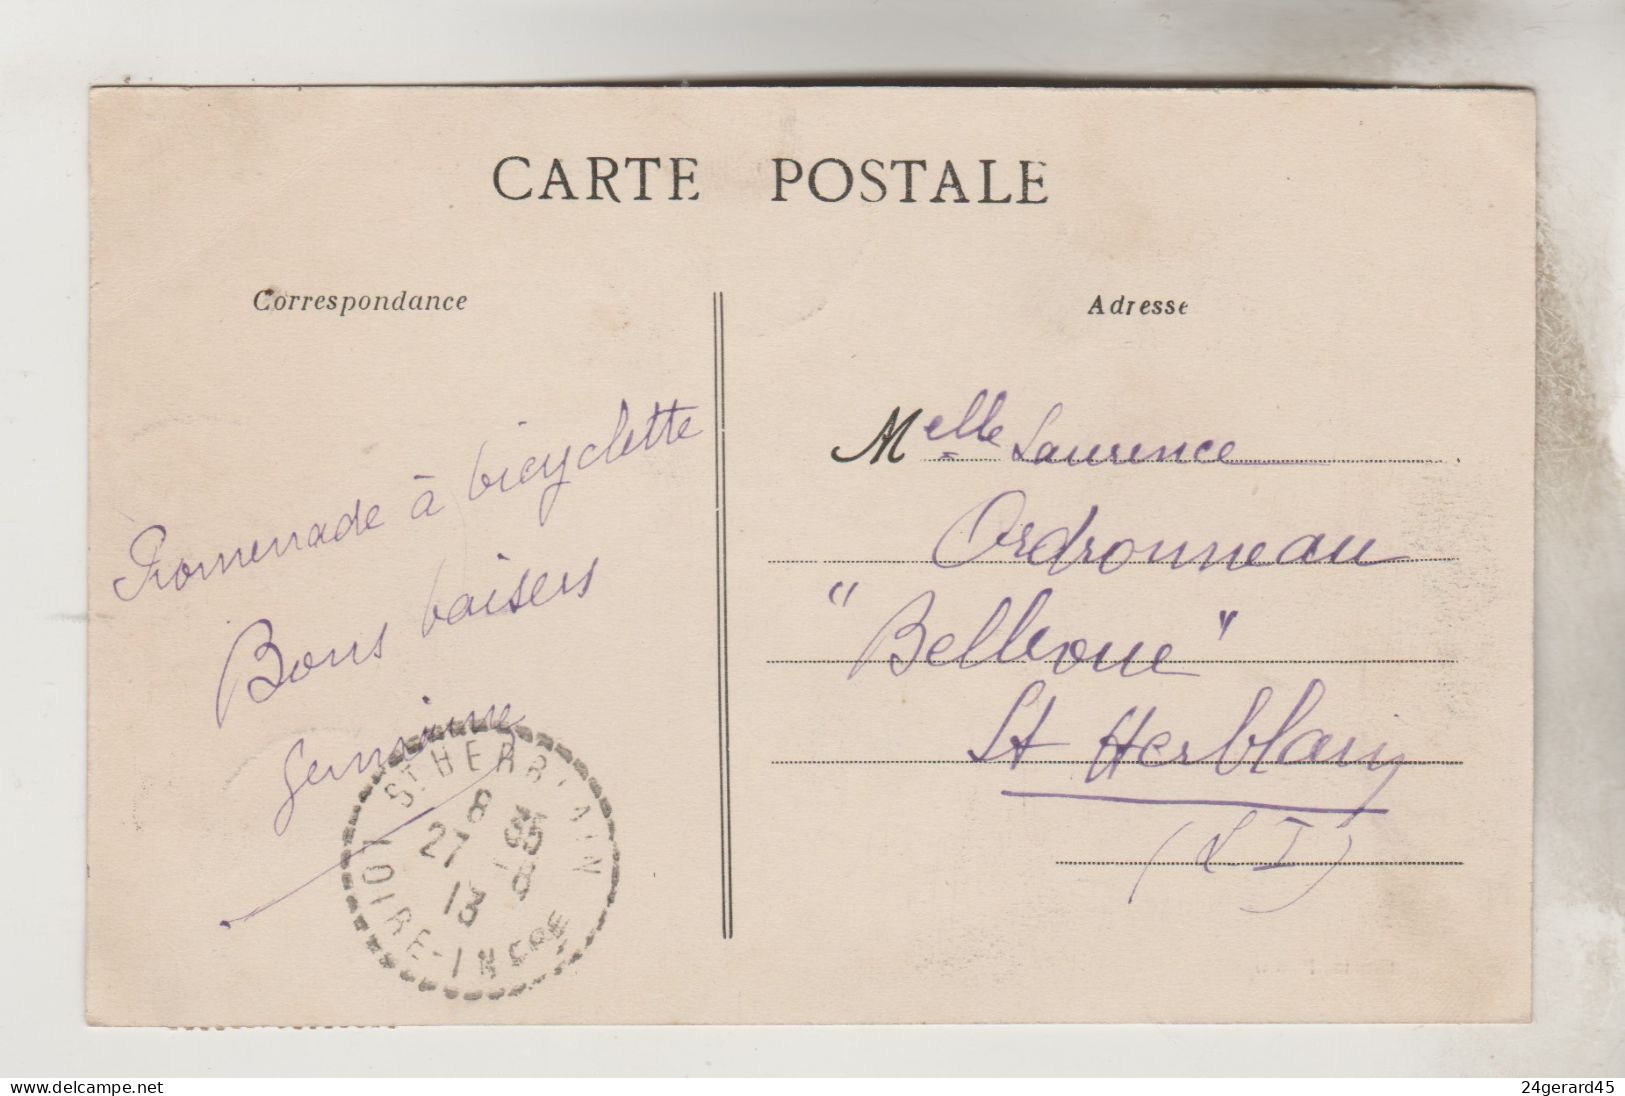 CARTE POSTALE
Correspondance
Adresse
Promenade à bicyclette
Bons baisers
Germaine
Melle Laurence
Ordronneau
"Bellevue"
St Herblain
(L I)
ST HERBLAIN
8 35
27 -8
13
LOIRE-INFRE
www.delcampe.net
24gerard45